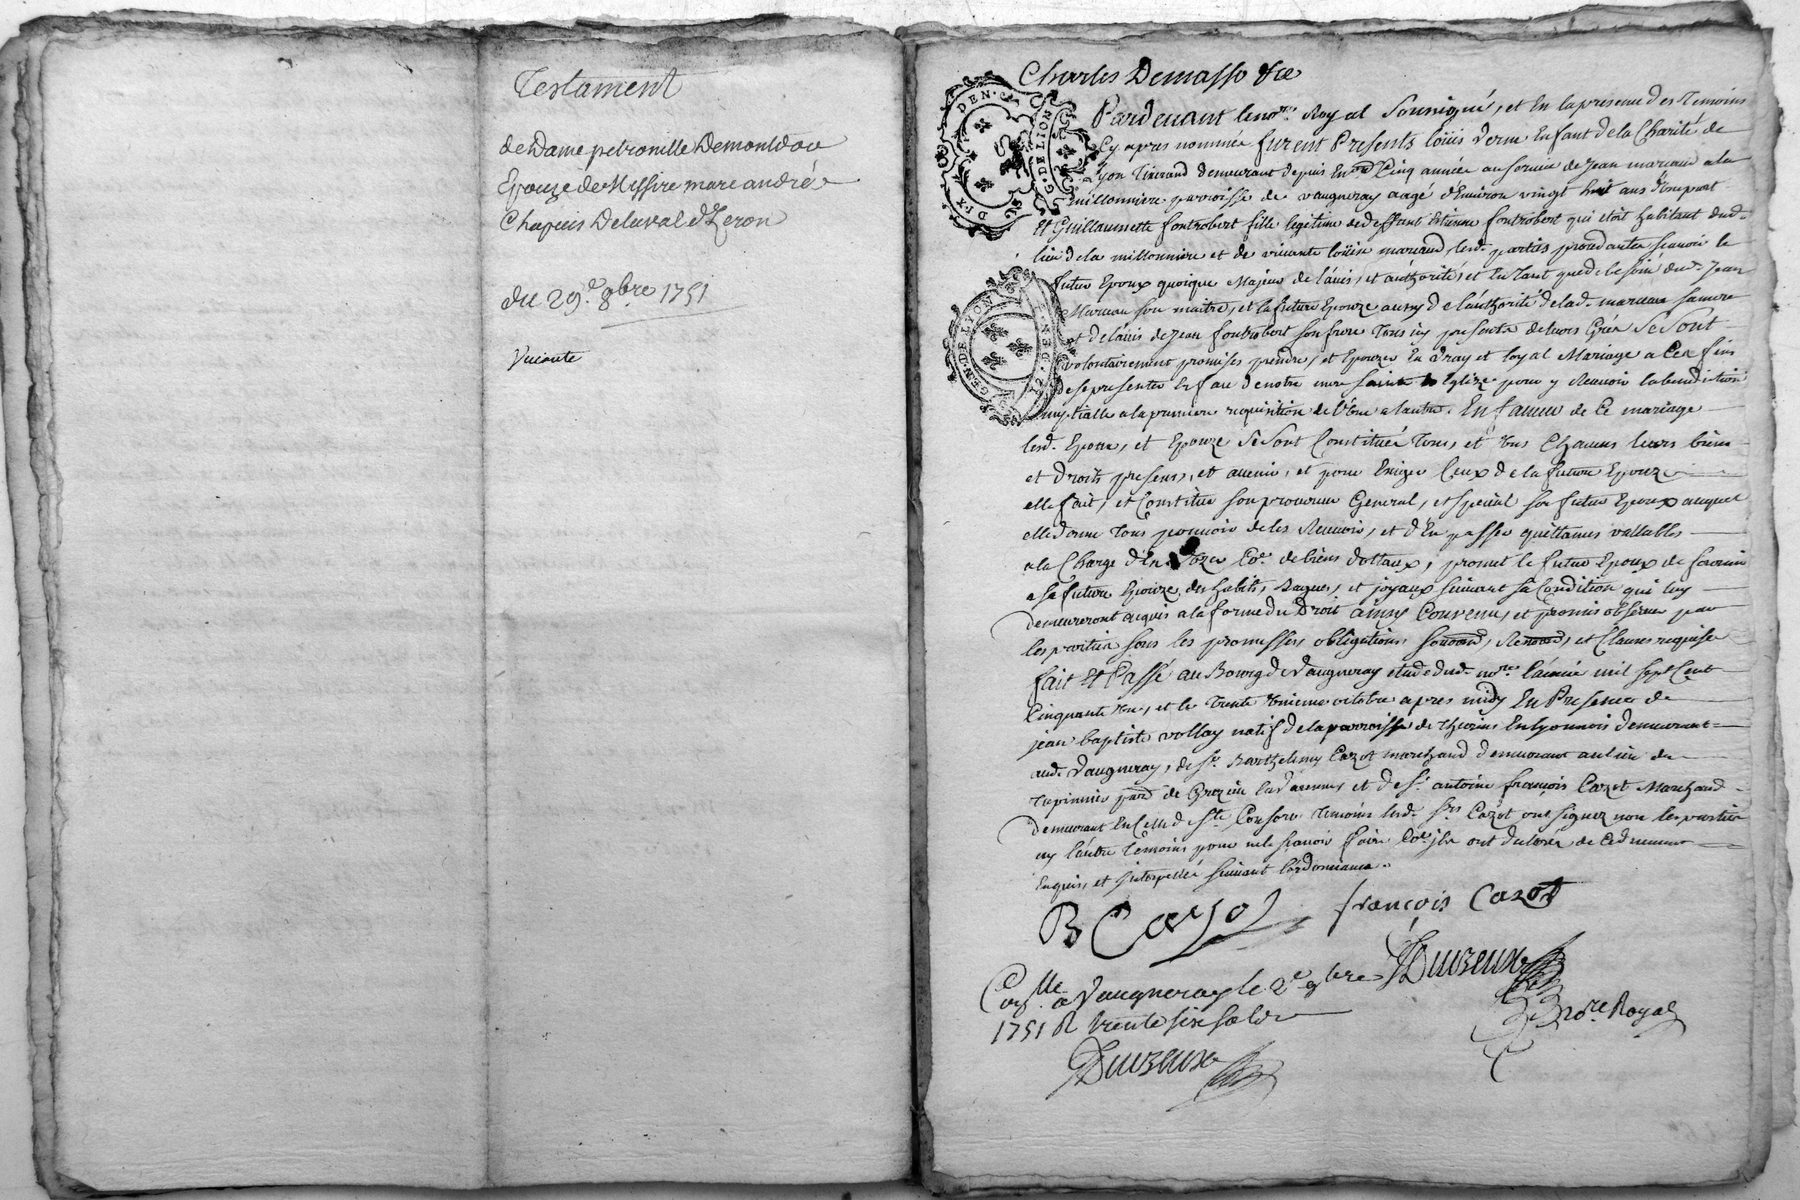 Testament
de Dame petronille Demontdor
Epouze de Messire marc andré
Chapuis Delaval d'Izeron
du 29.e 8bre 1751
Vivante
Charles Demasso &ce
Pardevant le no.re Royal Soussigné, et En la presence des Temoins
Cy apres nommés furent Presents loüis Enfant de la Charité de
Lyon demeurant depuis Cinq année au service de Jean mariaud a la
millonniere parroisse de vaugneray aagé d'Environ vingt huit ans d'Une part
Et Guillaumette fontrobert fille legitime de deffunt Etienne fontrobert qui étoit habitant dud.
lieu de la millonniere et de vivante loüise mariaud, lesd. parties procedantes scavoir le
futur Epoux quoique Majeur de l'avis, et authorité, et En tant que de besoin du d. Jean
Mariaud son maitre, et la future Epouze aussy de l'authorité de lad. mariaud sa mere
et de l'avis de Jean fontrobert son frere Tous icy presents de leurs Grés Se Sont
volontairement promises prendre, et Epouzer En vray et loyal Mariage a Ces fins
de se presenter En face de notre mere sainte Eglize pour y Recevoir la benediction
nuptialle a la premiere requisition de l'Une a l'autre. En faveur de Ce mariage
lesd. Epoux, et Epouze Se Sont Constitués Tous, et Uns Chacuns leurs biens
et Droits presens, et avenir, et pour Exiger Ceux de la future Epouze
elle fait, et Constitue son procureur General, et special son futur Epoux auquel
elle donne Tous pouvoir de les Recevoir, et d'En passer quittances vallables
a la Charge d'En Co.e de biens dottaux, promet le futur Epoux de fournir
a sa future Epouze des habits, Bagues, et joyaux suivant sa Condition qui luy
demeureront acquis a la forme du Droit ainsy Convenu, et promis observer par
les parties sous les promesses, obligations, et Clauses requises
fait Et Passé au Bourg de Vaugneray etude dud. no.re l'année mil sept Cent
Cinquante Un, et le Trente Unieme octobre apres midy En Presence de
jean baptiste vollay natif de la parroisse de Thurins En lyonnois demeurant
aud. Vaugneray, de S.r Barthelemy Cazot marchand demeurant au lieu de
parr.e de Grezieu la Varenne et de S.r antoine françois Cazot Marchand
demeurant En Celle de S.te Consorce Temoins lesd. S.rs Cazot ont signez non les parties
ny l'autre Temoins pour ne le scavoir faire Co.e ils ont declarez de Ce duement
Enquis, et Interpellés suivant l'ordonnance.
B Cazot
françois Cazot
Con.lle a Vaugneray le 2.e 9bre
1751 R trente six sols
no.re Royal